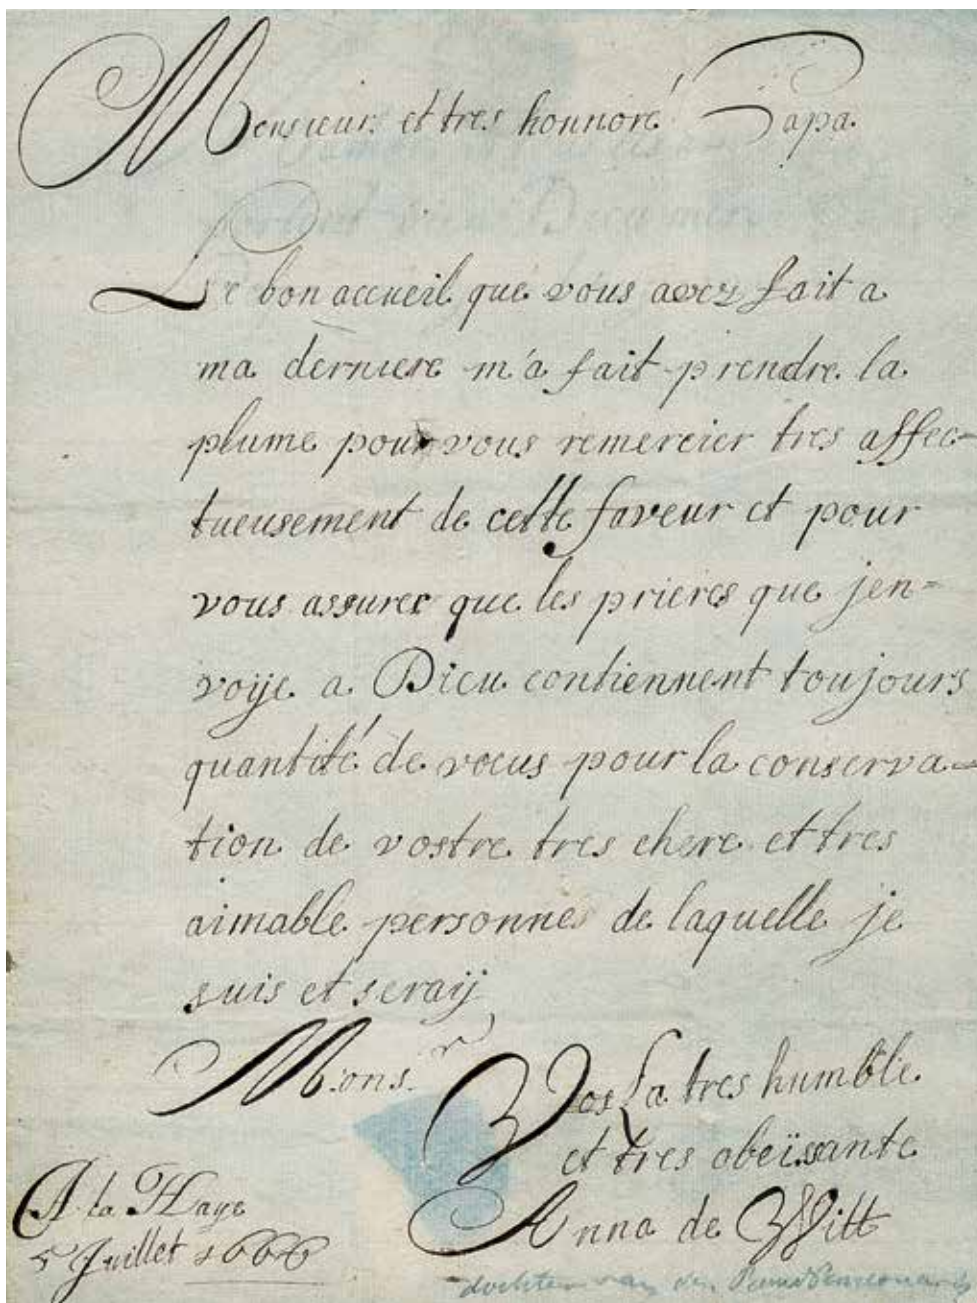 Monsieur et tres honnoré Papa.
Le bon accueil que vous avez fait a
ma derniere m'a fait prendre la
plume pour vous remercier tres affec-
tueusement de cette faveur et pour
vous assurer que les prieres que jen=
voije a Dieu contiennent toujours
quantité de voeus pour la conserva-
tion de vostre tres chere et tres
aimable personnes de laquelle je
suis et seraij
Mons.r
La tres humble
et tres obeïssante
Anna de Witt
A la Haye
5 Juillet 1666
dochter van den